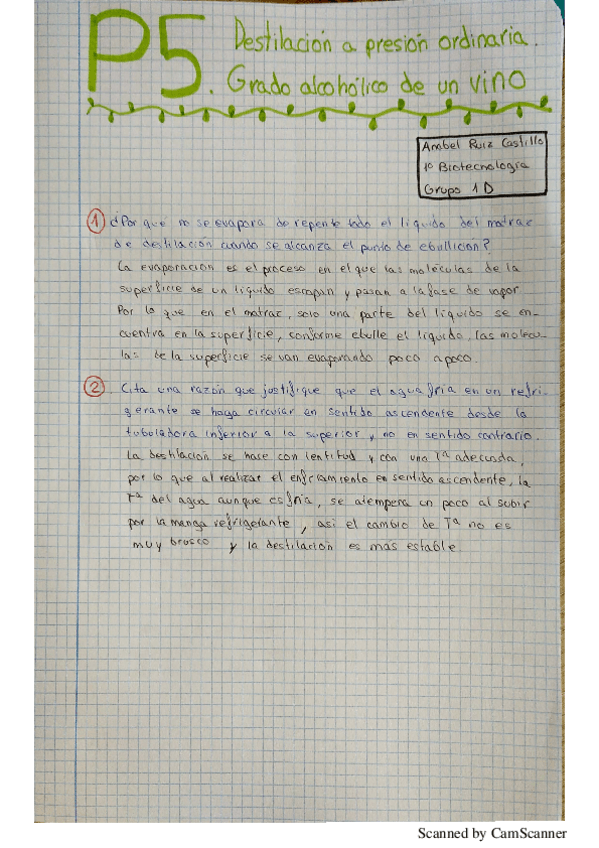 P5. Destilación a presión ordinaria.
Grado alcohólico de un vino
Anabel Ruiz Castillo
1º Biotecnología
Grupo 1D
1 ¿Por que no se evapora de repente todo el líquido del matraz
de destilación cuando se alcanza el punto de ebullición?
La evaporación es el proceso en el que las moléculas de la
superficie de un líquido escapan y pasan a la fase de vapor.
Por lo que en el matraz, solo una parte del líquido se en-
cuentra en la superficie, conforme ebulle el líquido, las molécu-
las de la superficie se van evaporando poco a poco.
2 Cita una razón que justifique que el agua fría en un refri-
gerante se haga circular en sentido ascendente desde la
tubuladora inferior a la superior y no en sentido contrario.
La destilación se hace con lentitud y con una Tª adecuada,
por lo que al realizar el enfriamiento en sentido ascendente, la
Tª del agua aunque es fría, se atempera un poco al subir
por la manga refrigerante, así el cambio de Tª no es
muy brusco y la destilación es más estable.
Scanned by CamScanner